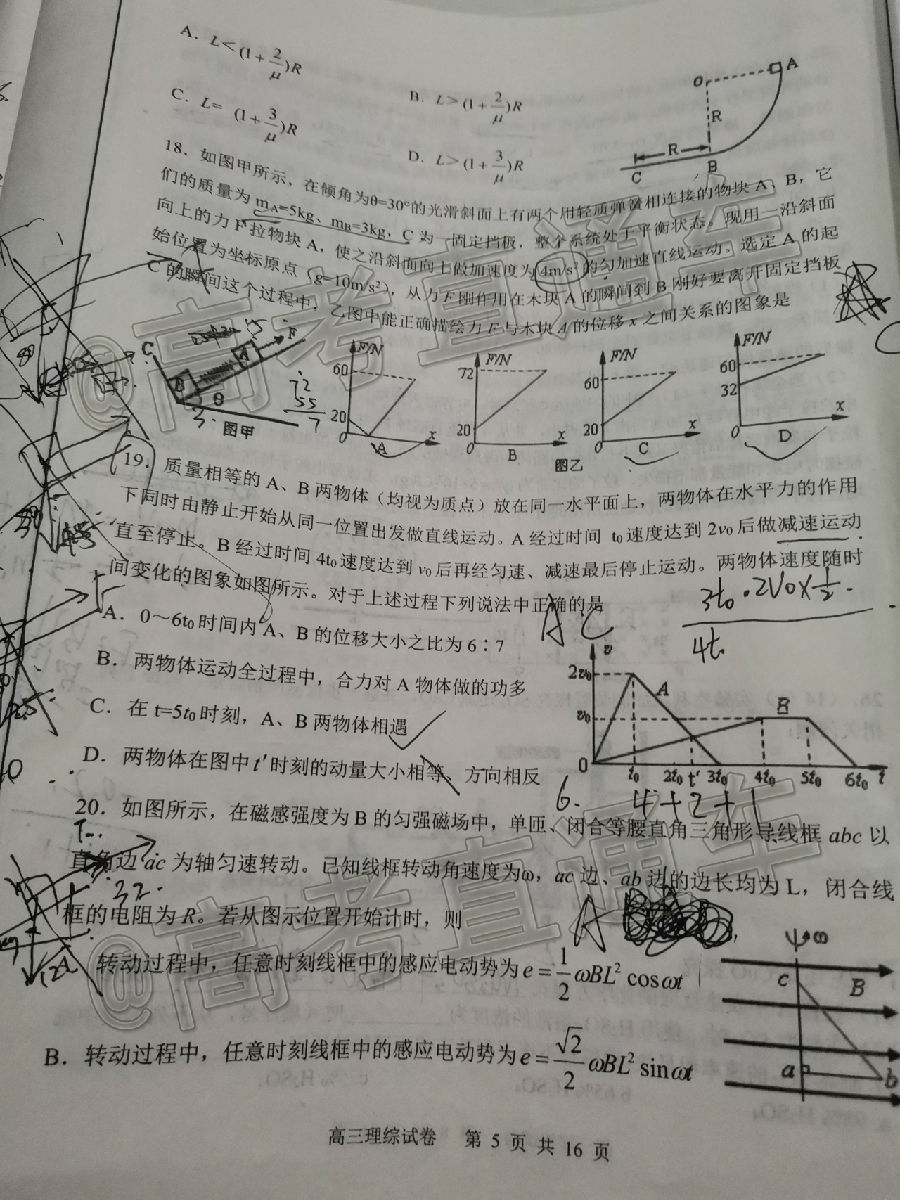 A. L<(1+2/μ)R
B. L>(1+2/μ)R
C. L=(1+3/μ)R
D. L>(1+3/μ)R
O
A
R
R
C
B
18. 如图甲所示，在倾角为θ=30°的光滑斜面上有两个用轻质弹簧相连接的物块 A、B，它
们的质量为 mA=5kg、mB=3kg，C 为一固定挡板，整个系统处于平衡状态。现用一沿斜面
向上的力 F 拉物块 A，使之沿斜面向上做加速度为 4m/s² 的匀加速直线运动。选定 A 的起
始位置为坐标原点（g=10m/s²），从力 F 刚作用在木块 A 的瞬间到 B 刚好要离开固定挡板
C 的瞬间这个过程中，乙图中能正确描绘力 F 与木块 A 的位移 x 之间关系的图象是
C
B
A
F
θ
图甲
72
55
7
F/N
60
20
0
A
x
F/N
72
20
0
B
x
F/N
60
20
0
C
x
F/N
60
32
0
D
x
图乙
19. 质量相等的 A、B 两物体（均视为质点）放在同一水平面上，两物体在水平力的作用
下同时由静止开始从同一位置出发做直线运动。A 经过时间 t₀ 速度达到 2v₀ 后做减速运动
直至停止。B 经过时间 4t₀ 速度达到 v₀ 后再经匀速、减速最后停止运动。两物体速度随时
间变化的图象如图所示。对于上述过程下列说法中正确的是
A C
3t₀·2V₀×1/2·
4t
A. 0～6t₀ 时间内 A、B 的位移大小之比为 6∶7
B. 两物体运动全过程中，合力对 A 物体做的功多
C. 在 t=5t₀ 时刻，A、B 两物体相遇
D. 两物体在图中 t′ 时刻的动量大小相等、方向相反
v
2v₀
v₀
0
A
B
t₀
2t₀
t′
3t₀
4t₀
5t₀
6t₀
t
6.
4+2+1
20. 如图所示，在磁感强度为 B 的匀强磁场中，单匝、闭合等腰直角三角形导线框 abc 以
直角边 ac 为轴匀速转动。已知线框转动角速度为ω，ac 边、ab 边的边长均为 L，闭合线
框的电阻为 R。若从图示位置开始计时，则
32.
A
转动过程中，任意时刻线框中的感应电动势为 e=1/2 ωBL²cosωt
B. 转动过程中，任意时刻线框中的感应电动势为 e=√2/2 ωBL²sinωt
ω
c
B
a
b
高三理综试卷 第 5 页 共 16 页
@高考直通车
@高考直通车